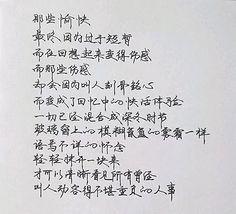 那些愉快
最终因为过于短暂
而在回想起来变得伤感
而那些伤感
却会因为叫人刻骨铭心
而变成了回忆中的快活体验
一切已经混合成深冬时节
玻璃窗上的模糊氤氲的雾霭一样
语焉不详的怀念
轻轻抹开一块来
才可以清晰看见所有曾经
叫人动容得不堪重负的人事